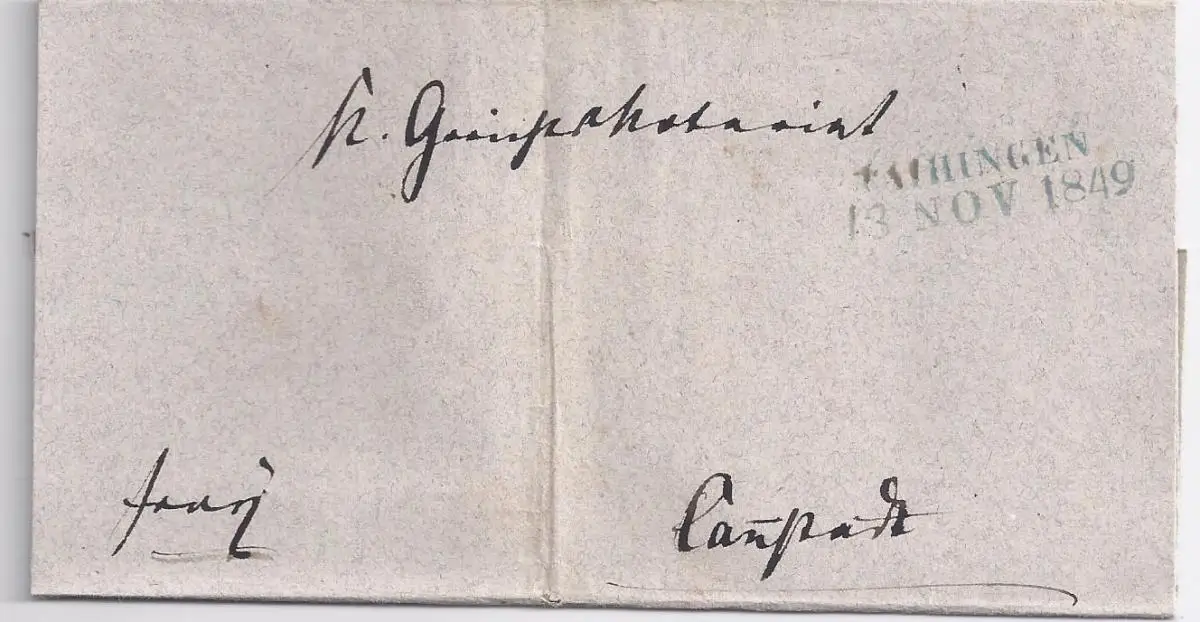 K. Gerichtsnotariat
VAIHINGEN
13 NOV 1849
Canstadt